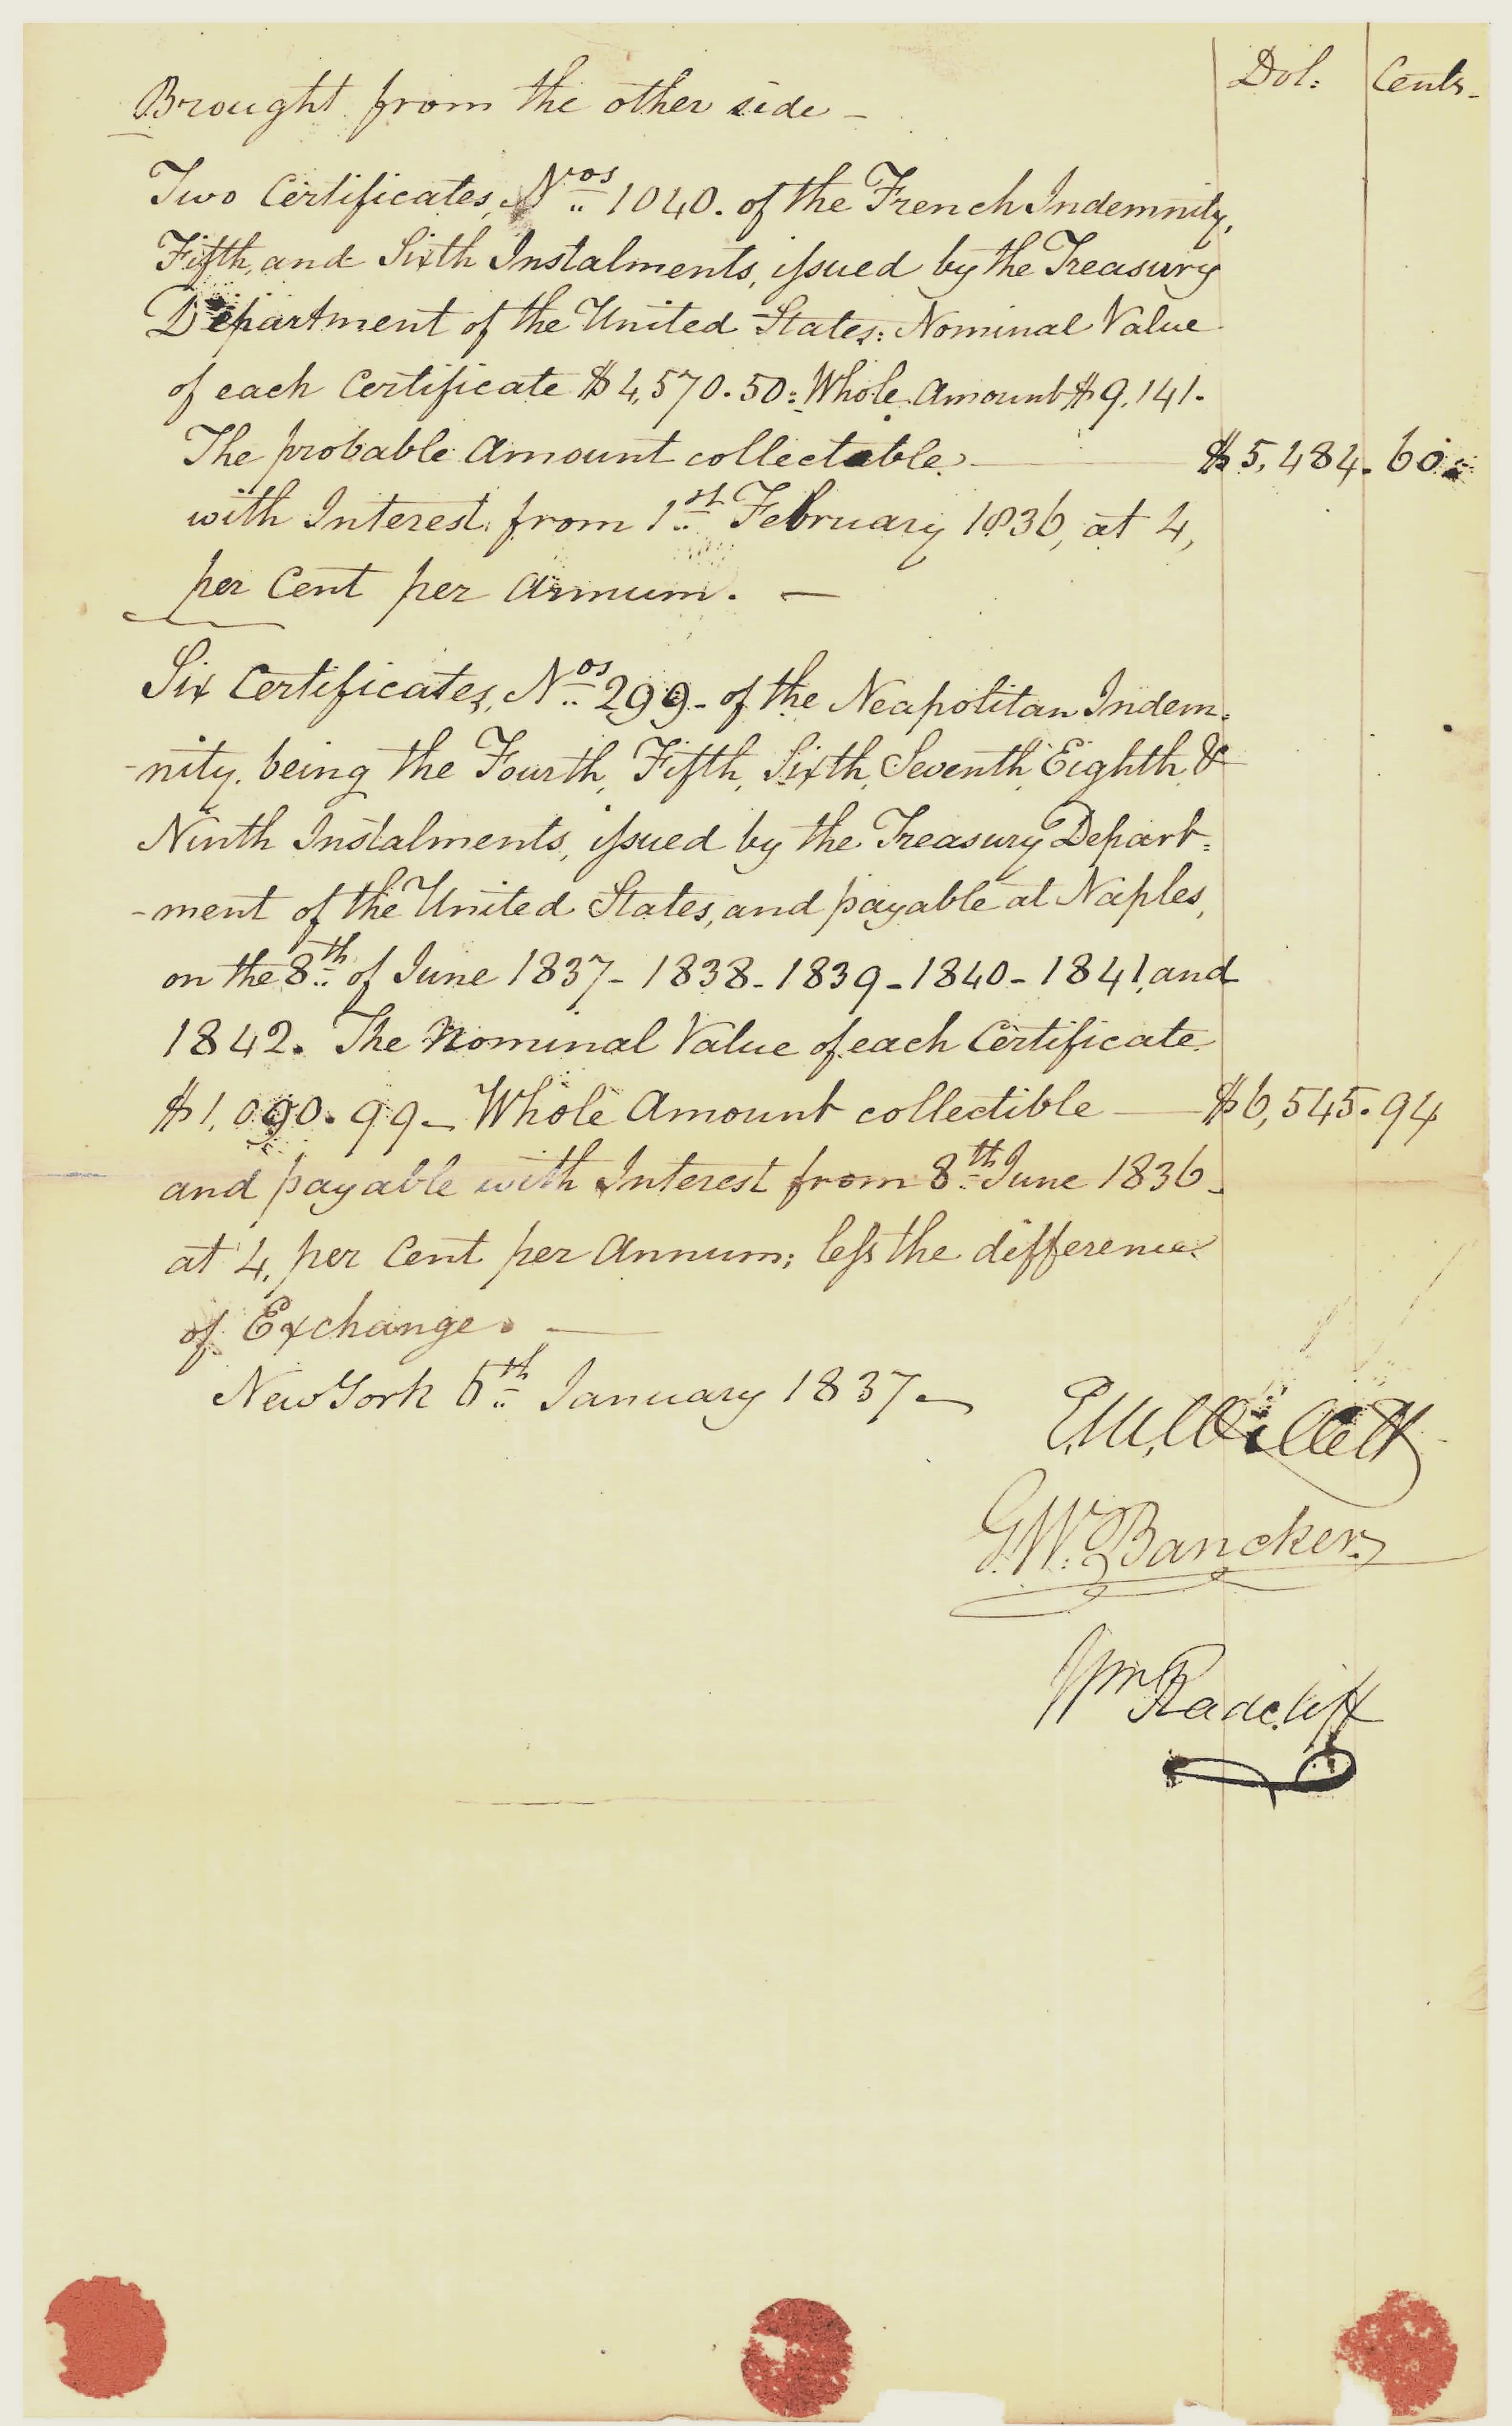 Dol: Cents-
Brought from the other side -
Two Certificates, Nos 1040. of the French Indemnity,
Fifth, and Sixth Instalments, issued by the Treasury
Department of the United States: Nominal Value
of each Certificate $4,570.50: Whole Amount $9,141.
The probable Amount collectable $5,484.60
with Interest from 1st February 1836, at 4,
per Cent per Annum. -
Six Certificates, Nos 299- of the Neapolitan Indem-
-nity, being the Fourth, Fifth, Sixth, Seventh, Eighth, &
Ninth Instalments, issued by the Treasury Depart=
-ment of the United States, and payable at Naples,
on the 8th of June 1837- 1838- 1839- 1840- 1841, and
1842. The Nominal Value of each Certificate
$1,090.99- Whole Amount collectible $6,545.94
and payable with Interest from 8th June 1836-
at 4, per Cent per Annum; less the difference
of Exchange. -
New York 6th January 1837-
E.M. Willett
G.W. Bancker
Wm Radcliff